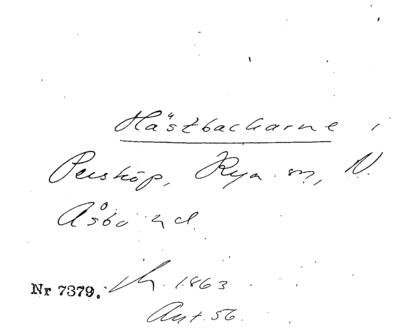 Hästbackarne i
Perstorp, Rya sn, N.
Åsbo hd.
Nr 7379. 1863
Ant. 56.